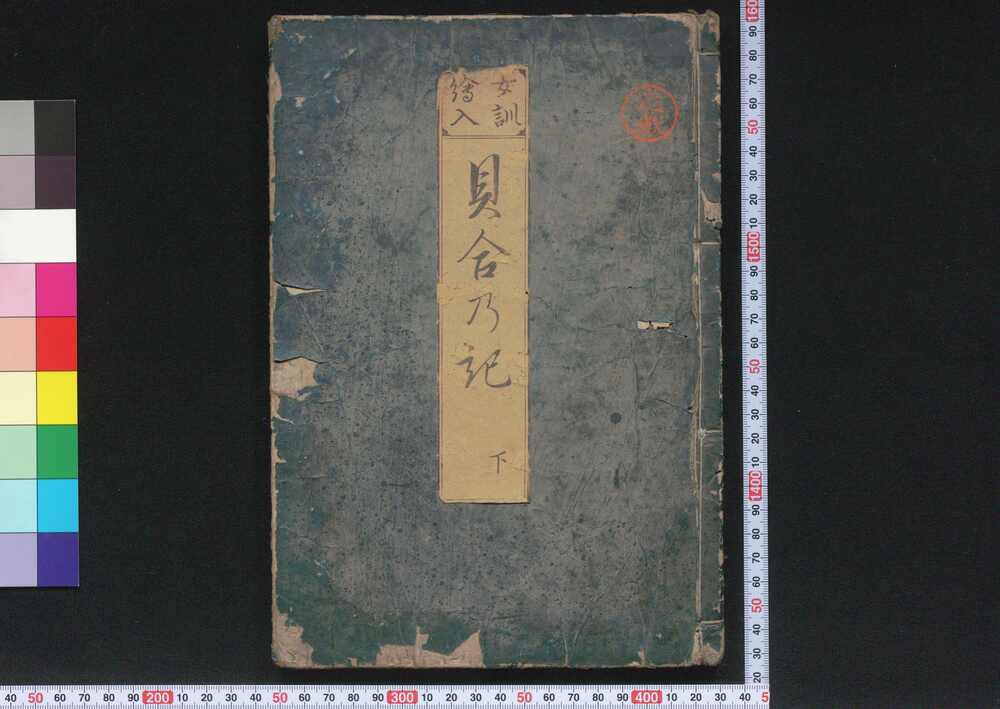 女訓
繪入
貝合乃記
下
160
90
80
70
60
50
40
30
20
10
1500
90
80
70
60
50
40
30
20
10
1400
90
80
70
60
50
40
30
20
40 50 60 70 80 90 200 10 20 30 40 50 60 70 80 90 300 10 20 30 40 50 60 70 80 90 400 10 20 30 40 5